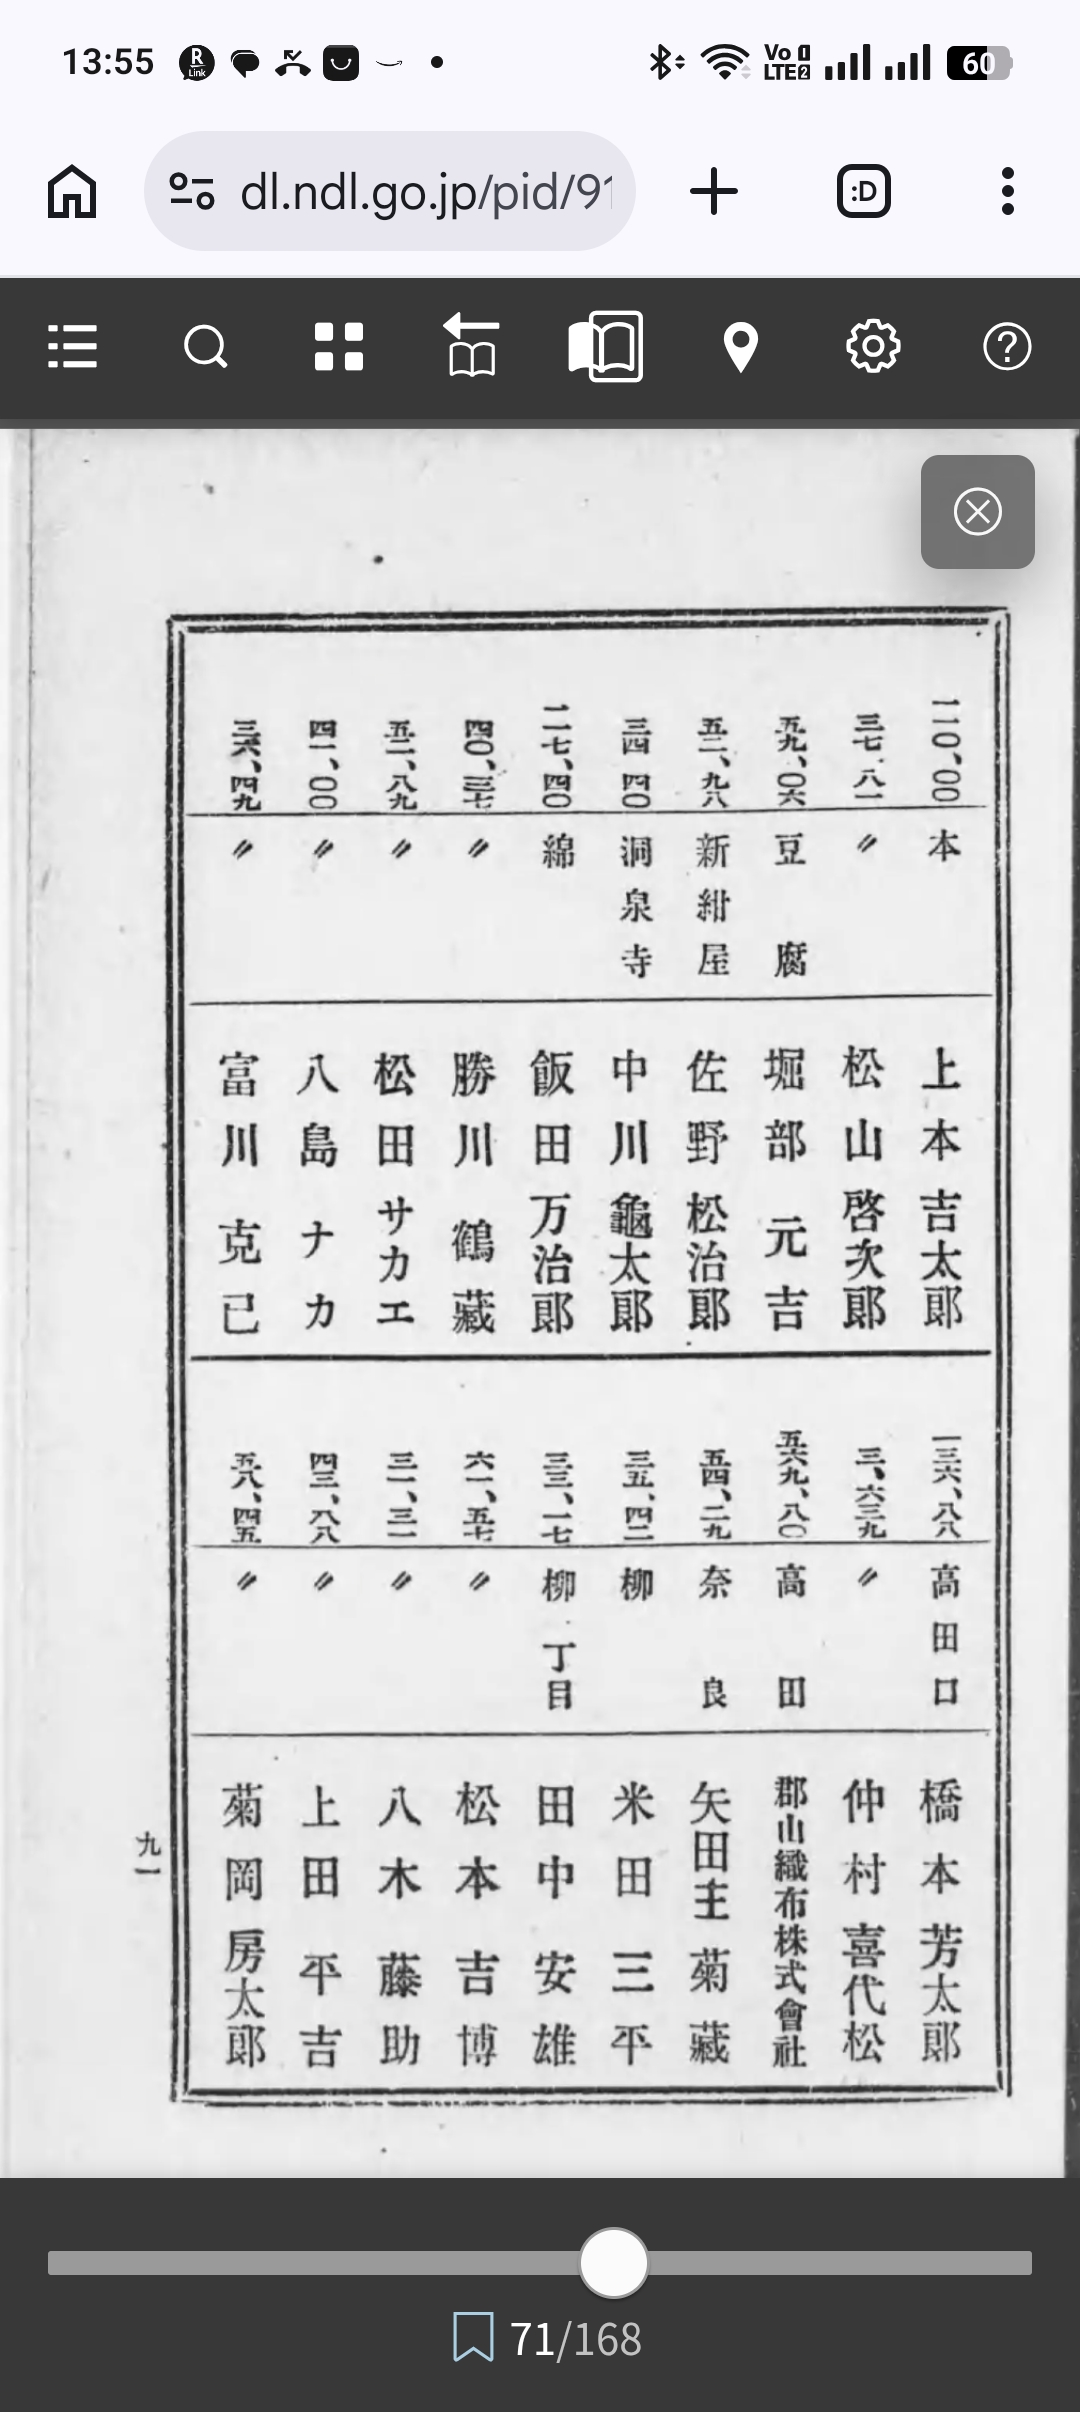 13:55
R Link
Vo LTE 1 2
60
dl.ndl.go.jp/pid/91
:D
一一〇、〇〇 本 上本吉太郎
三七、八一 〃 松山啓次郎
五九、〇六 豆腐 堀部元吉
五二、九八 新紺屋 佐野松治郎
三四 四〇 洞泉寺 中川龜太郎
二七、四〇 綿 飯田万治郎
四〇、三七 〃 勝川鶴藏
五二、八九 〃 松田サカエ
四一、〇〇 〃 八島ナカ
三六、四九 〃 富川克己
一三六、八八 高田口 橋本芳太郎
三、六三九 〃 仲村喜代松
五六九、八〇 高田 郡山織布株式會社
五四、二九 奈良 矢田主菊藏
三五、四二 柳 米田三平
三三、一七 柳 丁目 田中安雄
六一、五七 〃 松本吉博
三一、三一 〃 八木藤助
四三、八八 〃 上田平吉
五八、四五 〃 菊岡房太郎
九一
71/168